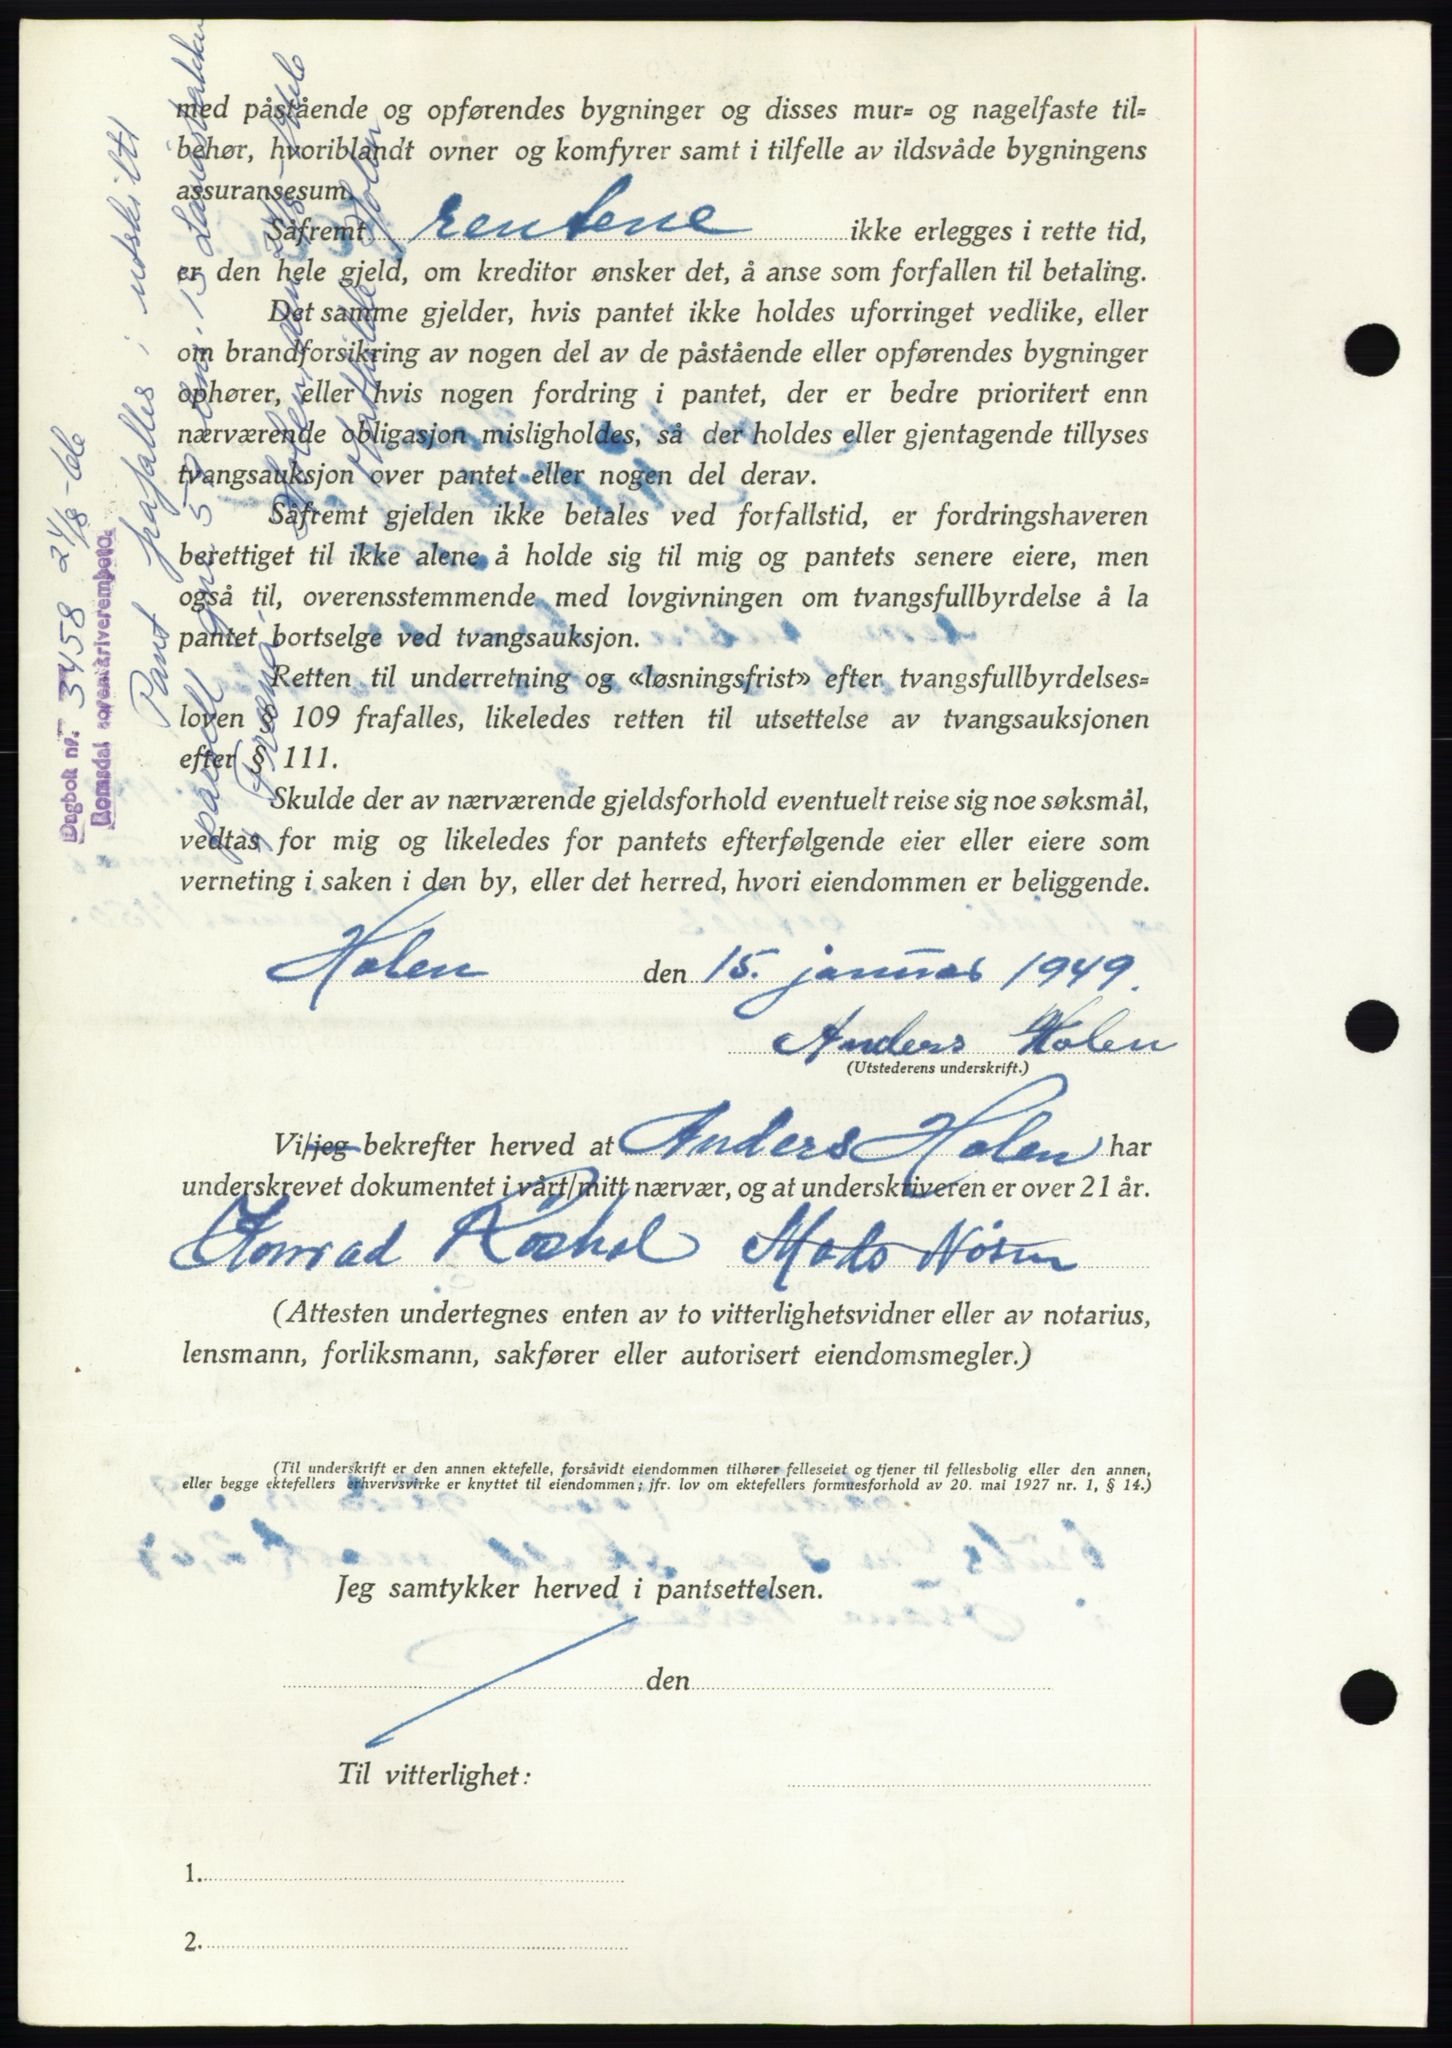 med påstående og opførendes bygninger og disses mur= og nagelfaste til=
behør, hvoriblandt ovner og komfyrer samt i tilfelle av ildsvåde bygningens
assuransesum.
Såfremt rentene ikke erlegges i rette tid,
er den hele gjeld, om kreditor ønsker det, å anse som forfallen til betaling.
Det samme gjelder, hvis pantet ikke holdes uforringet vedlike, eller
om brandforsikring av nogen del av de påstående eller opførendes bygninger
ophører, eller hvis nogen fordring i pantet, der er bedre prioritert enn
nærværende obligasjon misligholdes, så der holdes eller gjentagende tillyses
tvangsauksjon over pantet eller nogen del derav.
Såfremt gjelden ikke betales ved forfallstid, er fordringshaveren
berettiget til ikke alene å holde sig til mig og pantets senere eiere, men
også til, overensstemmende med lovgivningen om tvangsfullbyrdelse å la
pantet bortselge ved tvangsauksjon.
Retten til underretning og «løsningsfrist» efter tvangsfullbyrdelses=
loven § 109 frafalles, likeledes retten til utsettelse av tvangsauksjonen
efter § 111.
Skulde der av nærværende gjeldsforhold eventuelt reise sig noe søksmål,
vedtas for mig og likeledes for pantets efterfølgende eier eller eiere som
verneting i saken i den by, eller det herred, hvori eiendommen er beliggende.
Holen den 15. januar 1949.
Anders Holen
(Utstederens underskrift.)
Vi/jeg bekrefter herved at Anders Holen har
underskrevet dokumentet i vårt/mitt nærvær, og at underskriveren er over 21 år.
Konrad Mats
(Attesten undertegnes enten av to vitterlighetsvidner eller av notarius,
lensmann, forliksmann, sakfører eller autorisert eiendomsmegler.)
(Til underskrift er den annen ektefelle, forsåvidt eiendommen tilhører felleseiet og tjener til fellesbolig eller den annen,
eller begge ektefellers erhvervsvirke er knyttet til eiendommen; jfr. lov om ektefellers formuesforhold av 20. mai 1927 nr. 1, § 14.)
Jeg samtykker herved i pantsettelsen.
den
Til vitterlighet:
1.
2.
Dagbok nr. 3458 24/8-66
Romsdal sorenskriverembete
Pant frafalles i utskilt
parsell gnr. 59 bnr. 15
i Fræna.
Holen den
Mathilde Holen